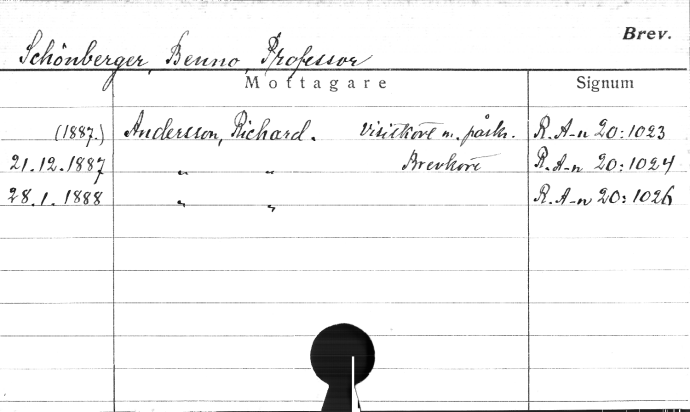 Brev.
Schönberger, Benno, Professor
Mottagare Signum
(1887.) Andersson, Richard. Visitkort m. påskr. R.A-n 20:1023
21.12.1887 " " Brevkort R.A-n 20:1024
28.1.1888 " " R.A-n 20:1026